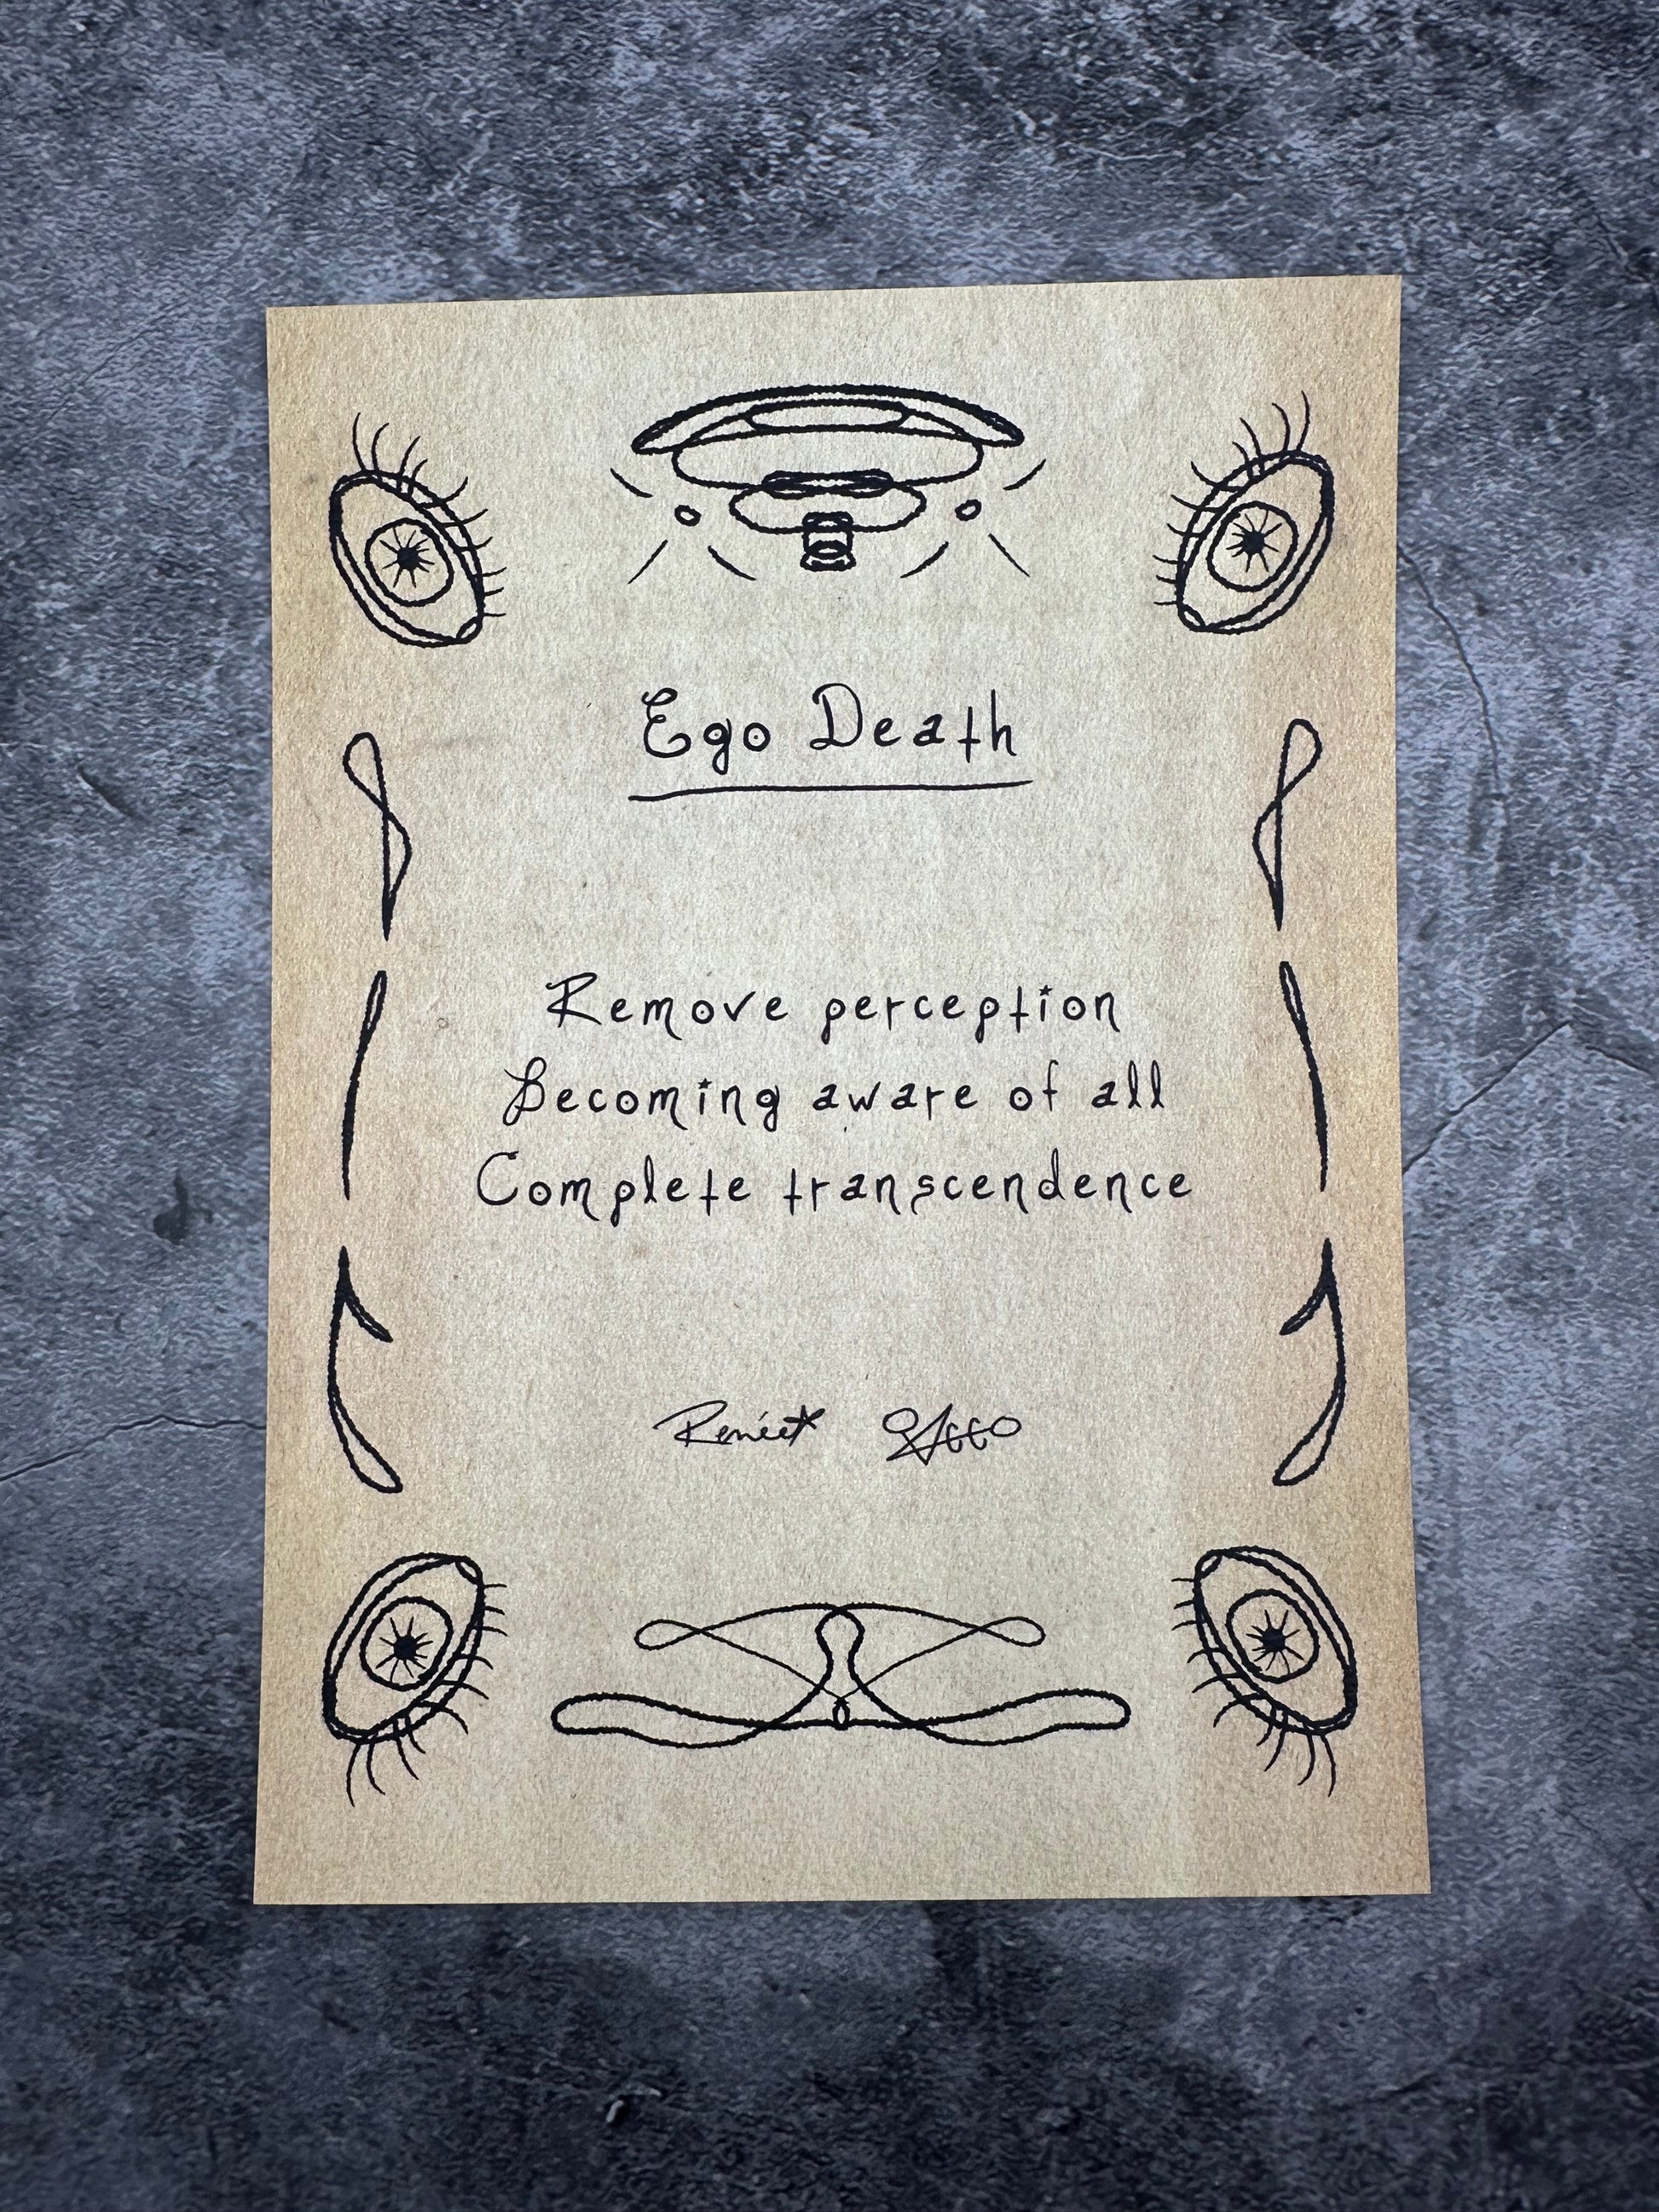 Ego Death
Remove perception
Becoming aware of all
Complete transcendence